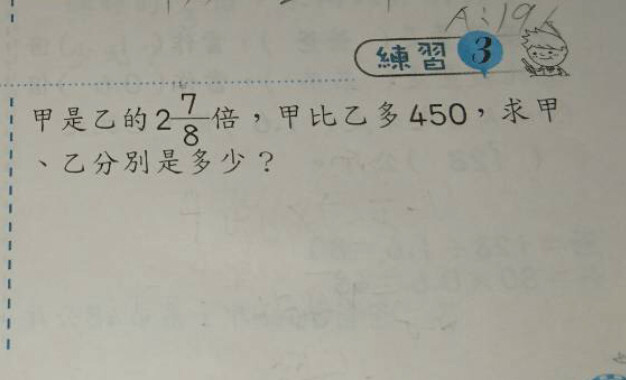 A:19
練習 3
甲是乙的2 7/8 倍，甲比乙多450，求甲
、乙分別是多少？